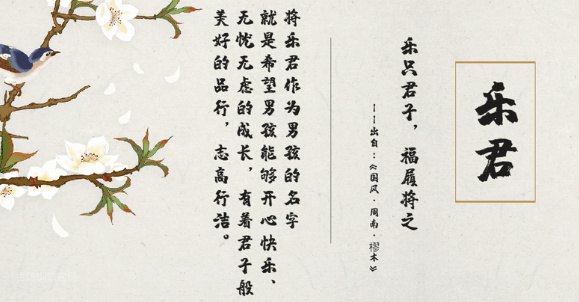 乐君
乐只君子，福履将之
——出自：《国风·周南·樛木》
将乐君作为男孩的名字
就是希望男孩能够开心快乐、
无忧无虑的成长，有着君子般
美好的品行，志高行洁。